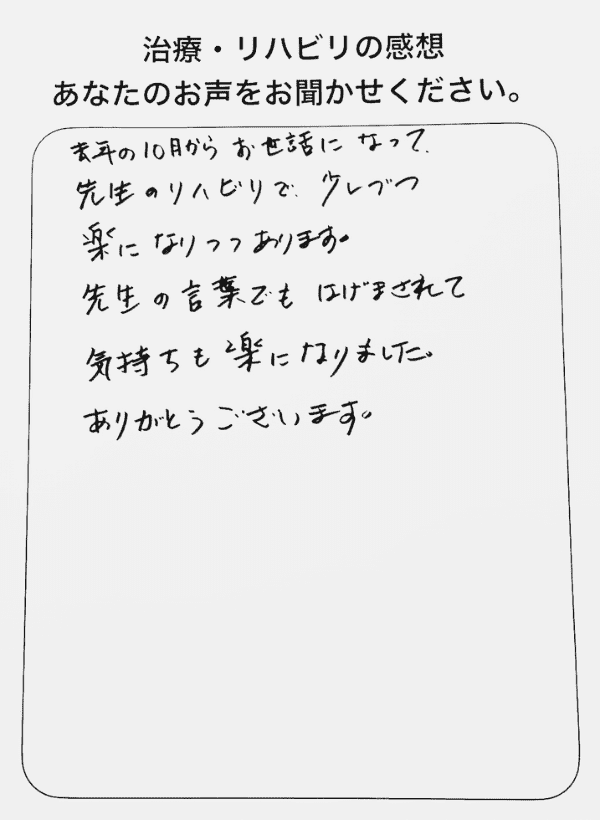 治療・リハビリの感想
あなたのお声をお聞かせください。
去年の10月から お世話に なって、
先生のリハビリで、少しづつ
楽になりつつあります。
先生の言葉でも はげまされて
気持ちも 楽になりました。
ありがとうございます。